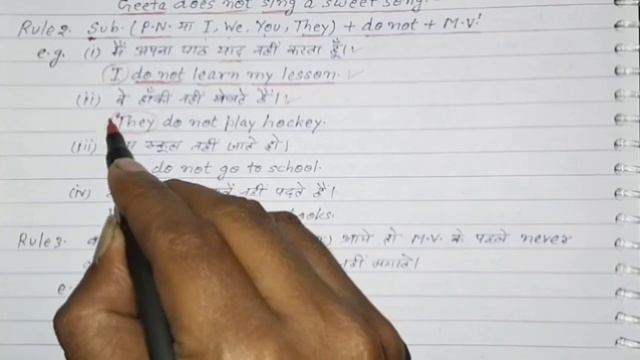 Geeta does not sing a sweet song.
Rule 2. Sub. (P.N. या I, We, You, They) + do not + M.V.¹
e.g. (i) मैं अपना पाठ याद नहीं करता हूँ।
(I) do not learn my lesson.
(ii) वे हॉकी नहीं खेलते हैं।
They do not play hockey.
(iii) स्कूल नहीं जाते हो।
do not go to school.
(iv) नहीं पढ़ते हैं।
Rule 3. आये तो M.V. के पहले never
नहीं लगाते।
e.